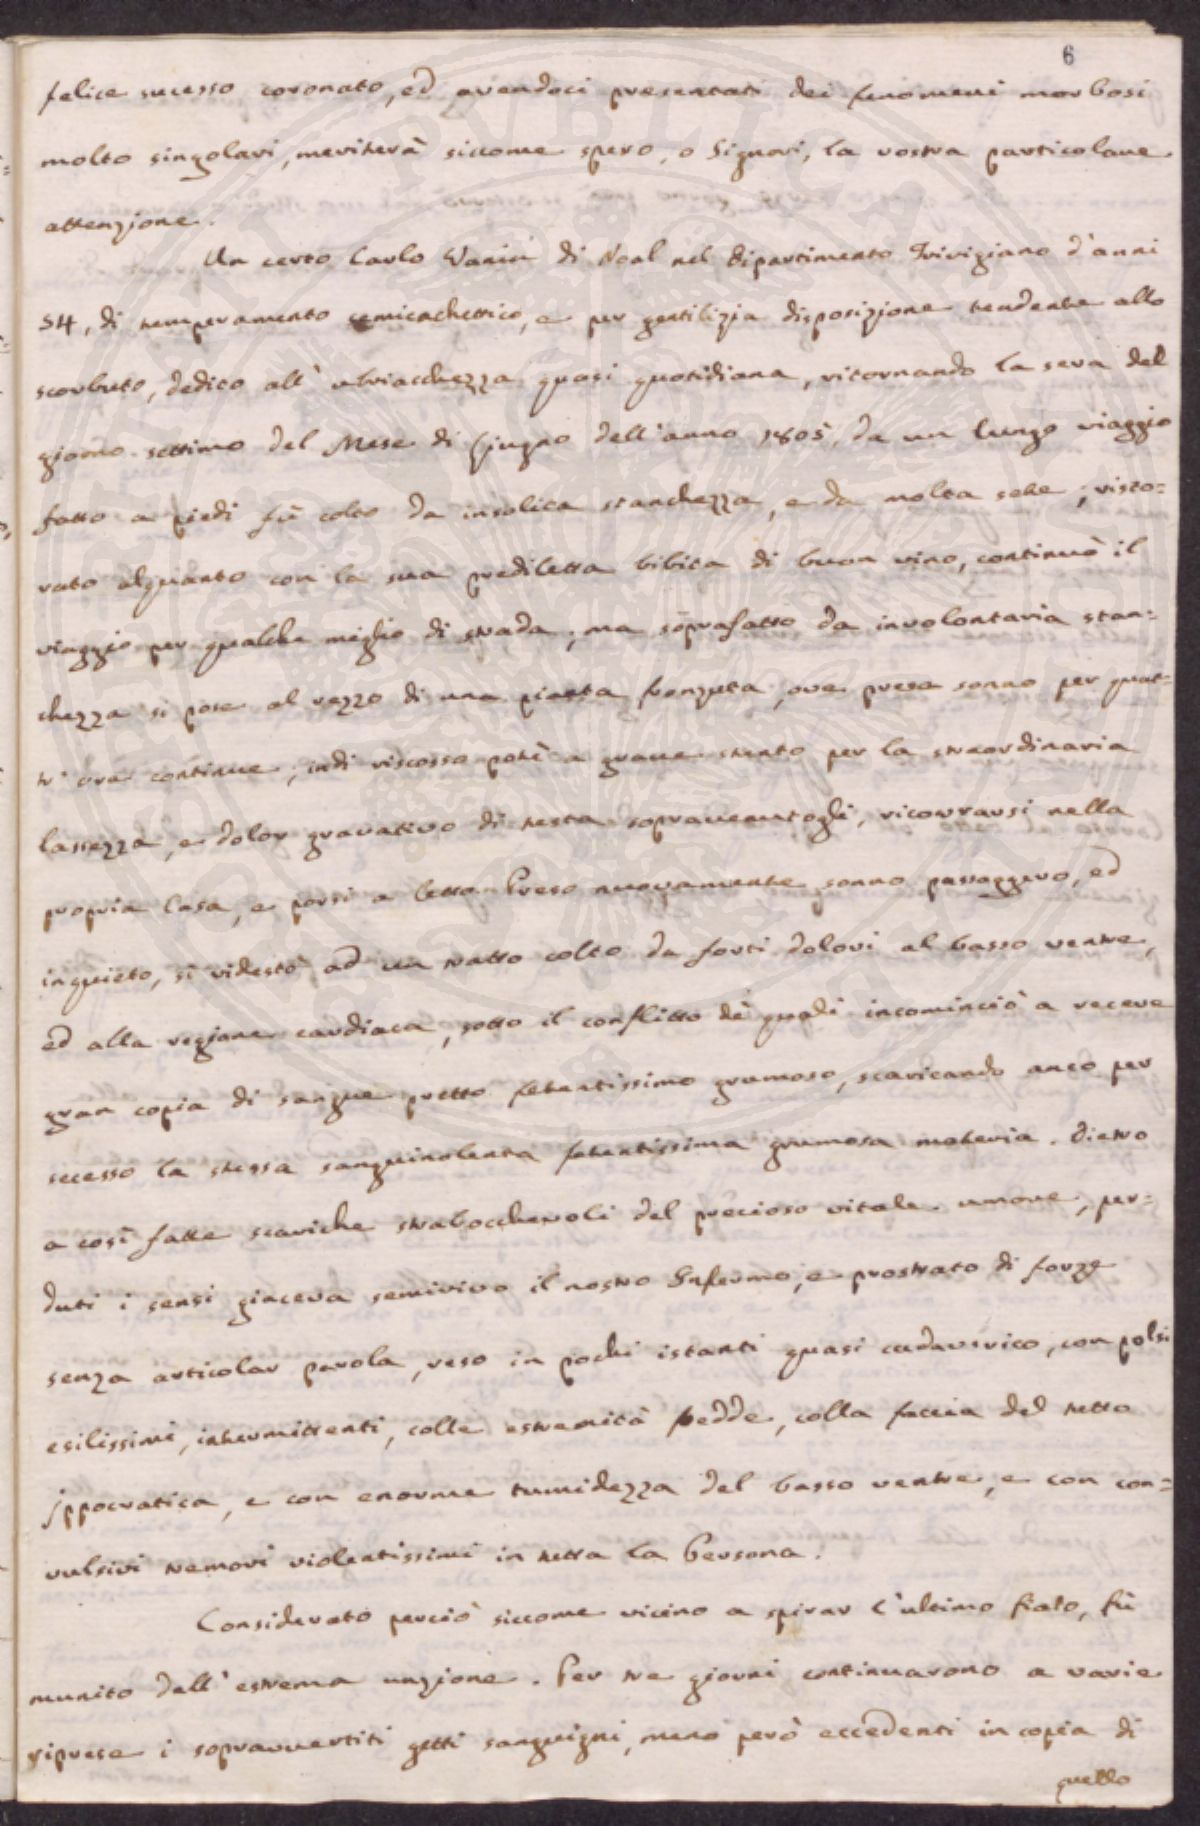 6
felice sucesso coronato, ed avendoci presentati dei fenomeni morbosi
molto singolari, meriterà siccome spero, o Signori, la vostra particolare
attenzione.
Un certo Carlo Vanin di Noal nel Dipartimento Trivigiano d'anni
54, di temperamento semicachettico, e per gentilizia disposizione tendente allo
scorbuto, dedito all'ubriacchezza quasi quotidiana, ritornando la sera del
giorno settimo del Mese di Giugno dell'anno 1805 da un lungo viaggio
fatto a piedi fù colto da insolita stanchezza, e da molta sete; risto=
rato alquanto con la sua prediletta bibita di buon vino, continuò il
viaggio per qualche miglio di strada; ma soprafatto da involontaria stan=
chezza si pose al rezzo di una pianta fronzuta, ove presa sonno per quat=
tr'ora continue, indi riscosso potè a grave stento per la straordinaria
lassezza, e dolor gravativo di testa sopravenutogli, ricovrarsi nella
propria Casa, e porsi a letto. Preso nuovamente sonno passaggero, ed
inquieto, si ridestò ad un tratto colto da forti dolori al basso ventre,
ed alla regione cardiaca, sotto il conflitto de' quali incominciò a recere
gran copia di sangue pretto fetentissimo grumoso, scaricando anco per
secesso la stessa sanguinolenta fetentissima grumosa materia. Dietro
a così fatte scariche straboccheuoli del precioso vitale umore, per=
duti i sensi giaceva semivivo il nostro Infermo, e prostrato di forze
senza articolar parola, reso in pochi istanti quasi cadaverico, con polsi
esilissimi, intermittenti, colle estremità fredde, colla faccia del tutto
Ippocratica, e con enorme tumidezza del basso ventre, e con con=
vulsivi tremori violentissimi in tutta la Persona.
Considerato perciò siccome vicino a spirar l'ultimo fiato, fù
munito dell'estrema unzione. Per tre giorni continuarono a varie
riprese i sopravvertiti getti sanguigni, meno però eccedenti in copia di
quello